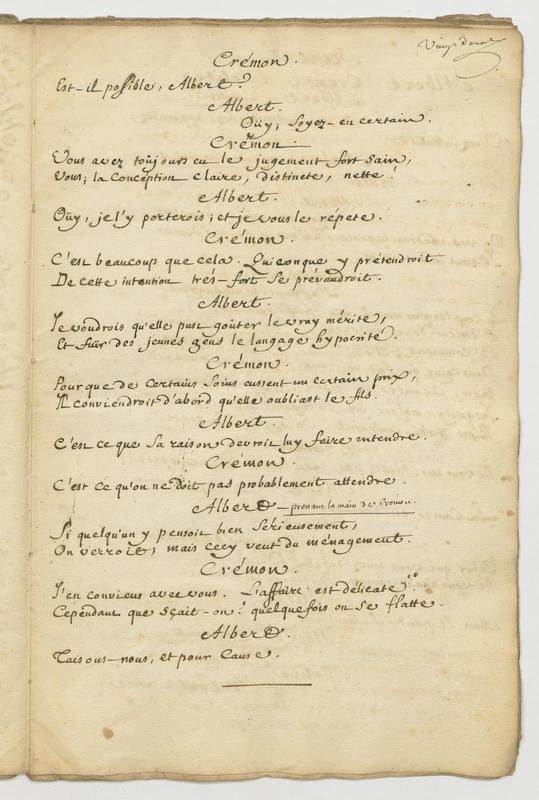 Vingt deux
Crémon.
Est-il possible, Albert?
Albert.
Oüy; soyez-en certain.
Crémon.
Vous avez toujours eu le jugement fort sain,
Vous; la Conception claire, distincte, nette!
Albert.
Oüy, je l'y porterois; et je vous le répete.
Crémon.
C'est beaucoup que cela. Quiconque y prétendroit
De cette intention trés-fort se prévaudroit.
Albert.
Je voudrois qu'elle pust goûter le vray mérite,
Et fuïr des jeunes gens le langage hypocrite.
Crémon.
Pour que de certains soins eussent un certain prix,
Il conviendroit d'abord qu'elle oubliast le fils.
Albert.
C'est ce que sa raison devroit luy faire entendre.
Crémon.
C'est ce qu'on ne doit pas probablement attendre.
Albert - prenant la main de Crémon.
Si quelqu'un y pensoit bien sérieusement,
On verroit; mais cecy veut du ménagement.
Crémon.
J'en conviens avec vous. L'affaire est délicate..
Cependant que sçait-on? quelquefois on se flatte.
Albert.
Taisons-nous, et pour Cause.